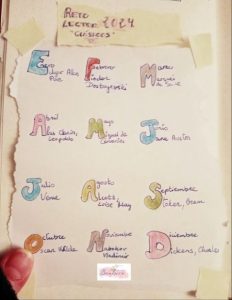 RETO
LECTOR 2024
"CLÁSICOS"
Enero
Edgar Allan
Poe
Febrero
Fiódor
Dostoyevski
Marzo
Marqués
de Sade
Abril
Alas Clarín,
Leopoldo
Mayo
Miguel de
Cervantes
Junio
Jane Austen
Julio
Verne
Agosto
Alcott,
Louise May
Septiembre
Stoker, Bram
Octubre
Oscar Wilde
Noviembre
Nabokov
Vladimir
Diciembre
Dickens, Charles